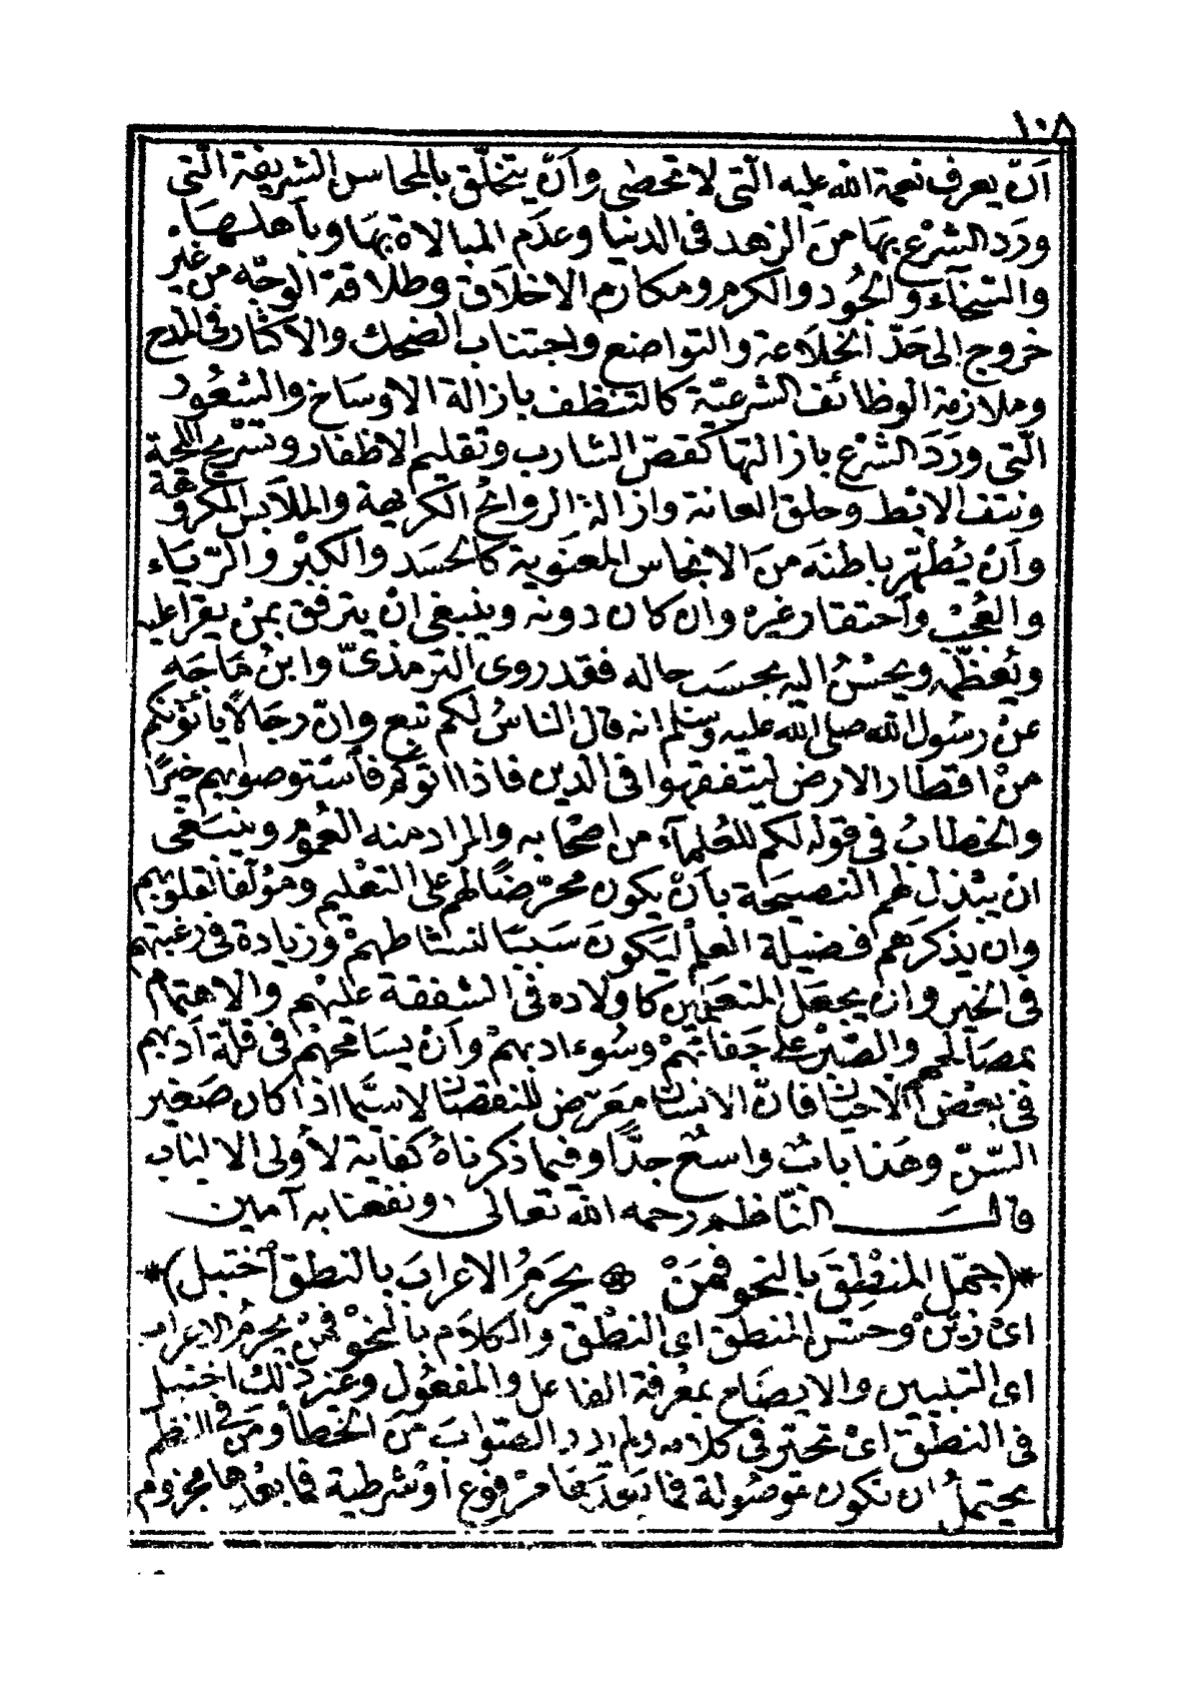 ١٠٨
أنّ يعرف نعمة الله عليه الّتى لا تحصى وأنّ يتخلّق بالمحاسن الشريفة الّتى
ورد الشرع بها من الزهد فى الدنيا وعدم المبالاة بها وبأهلها
والسخآء والجود والكرم ومكارم الاخلاق وطلاقة الوجه من غير
خروج الى حدّ الخلاعة والتواضع واجتناب الضحك والاكثار فى المدح
وملازمة الوظائف الشرعيّة كالتنظف بازالة الاوساخ والشعور
الّتى ورد الشرع بازالتها كقصّ الشارب وتقليم الاظفار وتسريح اللحية
ونتف الابط وحلق العانة وازالة الروائح الكريهة والملابس المكروهة
وأن يطهّر باطنه من الانجاس المعنوية كالحسد والكبر والرّياء
والعجب وأحتقار غيره وان كان دونه وينبغى ان يترفق بمن يقرا عليه
ويعظّمه ويحسن اليه بحسب حاله فقد روى الترمذىّ وابن ماجه
عن رسول الله صلى الله عليه وسلم انه قال الناس لكم تبع وانّ رجالاً يأتونكم
من اقطار الارض ليتفقهوا فى الدين فاذا اتوكم فأستوصوا بهم خيرًا
والخطاب فى قوله لكم للعلمآء من اصحابه والمراد منه العموم وينبغى
ان يبذل لهم النصيحة بأن يكون محرّضًا لهم على التعليم ومؤلّفا لقلوبهم
وان يذكرهم فضيلة العلم ليكون سببا لنشاطهم وزيادة فى رغبتهم
فى الخير وان يجعل المتعلمين كاولاده فى الشفقة عليهم والاهتمام
بمصالحهم والصّبر على جفائهم وسوء ادبهم وأن يسامحهم فى قلّة أدبهم
فى بعض الاحيان فانّ الانسان معرّض للنقصان لا سيّما اذا كان صغير
السّنّ وهذا باب واسع جدّا وفيما ذكرناه كفاية لأولى الالباب
قالـــ النّاظم رحمه الله تعالى ونفعنا به آمين
*(جمّل المنطق بالنحو فمن ۞ يحرم الاعراب بالنطق اختبل)*
اى زيّن وحسّن المنطق اى النطق والكلام بالنحو فمن يحرم الاعراب
اى التبيين والايضاح بمعرفة الفاعل والمفعول وغير ذلك اختبل
فى النطق اى تحيّر فى كلامه ولم يدر الصّواب من الخطأ ومن فى النظم
يحتمل ان تكون موصولة فما بعدها مرفوع او شرطية فما بعدها مجزوم